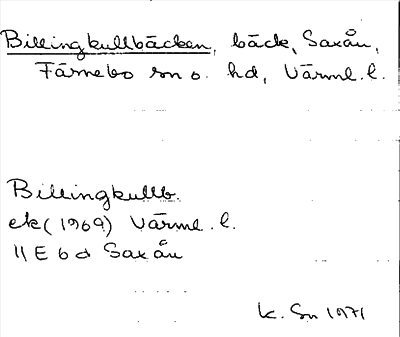 Billingkullbäcken, bäck, Saxån,
Färnebo sn o. hd, Värml. l.
Billingkullb.
ek (1969) Värml. l.
11 E 6 d Saxån
K. Sn 1971